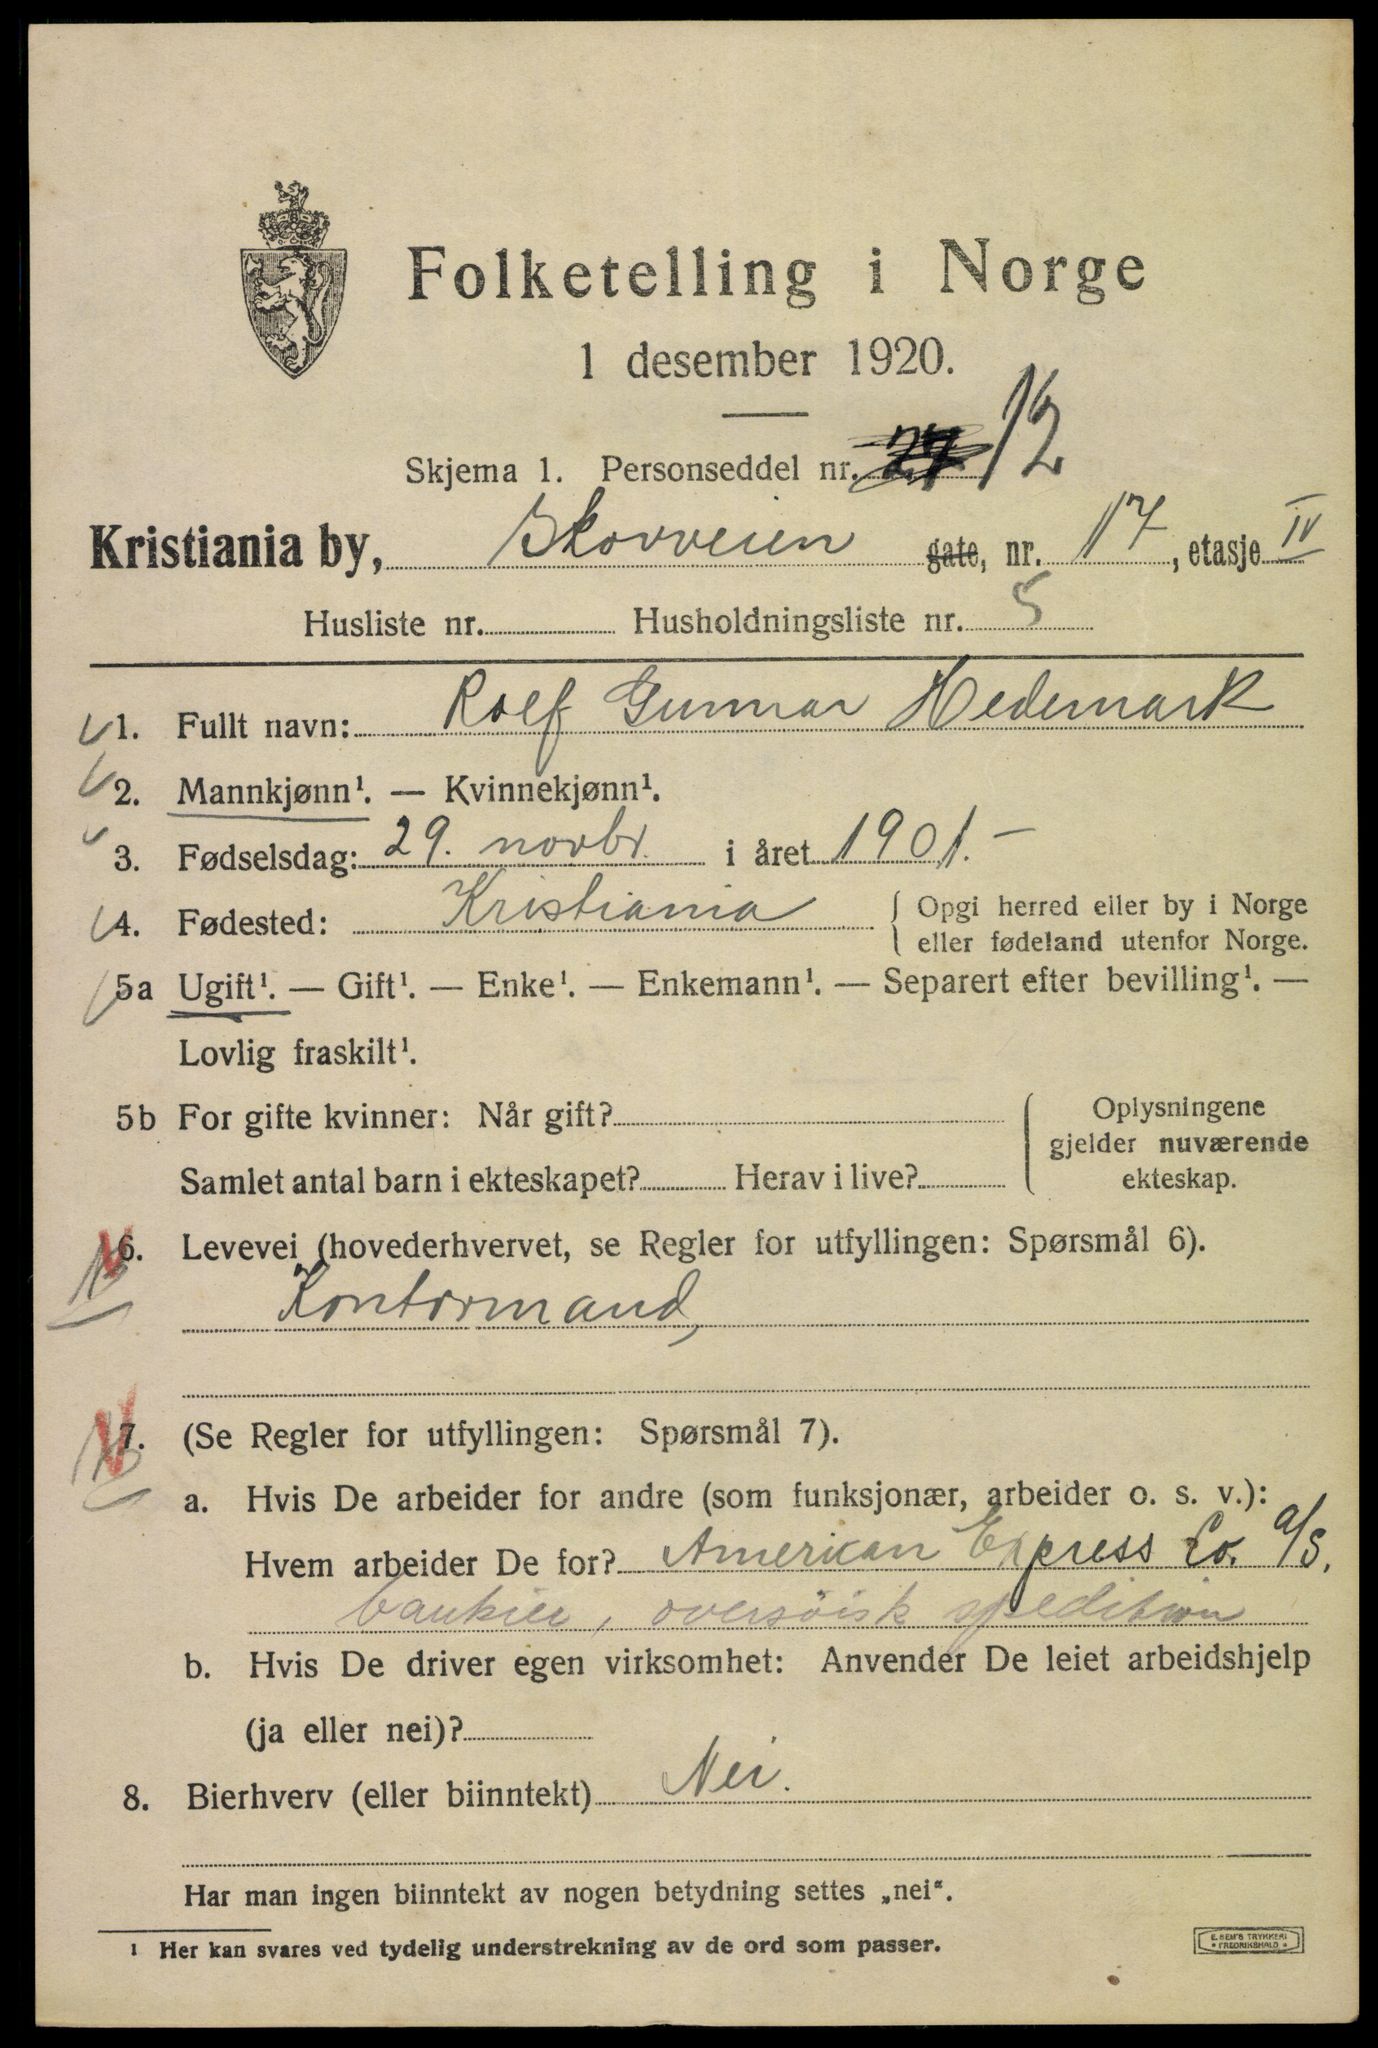 Folketelling i Norge
1 desember 1920.
Skjema 1. Personseddel nr. 27 12
Kristiania by, Skovveien gate, nr. 17, etasje IV
Husliste nr. Husholdningsliste nr. 5
1. Fullt navn: Rolf Gunnar Hedemark
2. Mannkjønn¹. — Kvinnekjønn¹.
3. Fødselsdag: 29. novbr. i året 1901.–
4. Fødested: Kristiania { Opgi herred eller by i Norge
eller fødeland utenfor Norge.
5a Ugift¹. — Gift¹. — Enke¹. — Enkemann¹. — Separert efter bevilling¹. —
Lovlig fraskilt¹.
5b For gifte kvinner: Når gift? { Oplysningene
gjelder nuværende
Samlet antal barn i ekteskapet? Herav i live? ekteskap.
6. Levevei (hovederhvervet, se Regler for utfyllingen: Spørsmål 6).
Kontormand,
7. (Se Regler for utfyllingen: Spørsmål 7).
a. Hvis De arbeider for andre (som funksjonær, arbeider o. s. v.):
Hvem arbeider De for? American Express Co. a/s.
bankier, oversöisk spedition
b. Hvis De driver egen virksomhet: Anvender De leiet arbeidshjelp
(ja eller nei)?
8. Bierhverv (eller biinntekt) Nei.
Har man ingen biinntekt av nogen betydning settes „nei“.
¹ Her kan svares ved tydelig understrekning av de ord som passer.
E. SEM'S TRYKKERI
• FREDRIKSHALD •